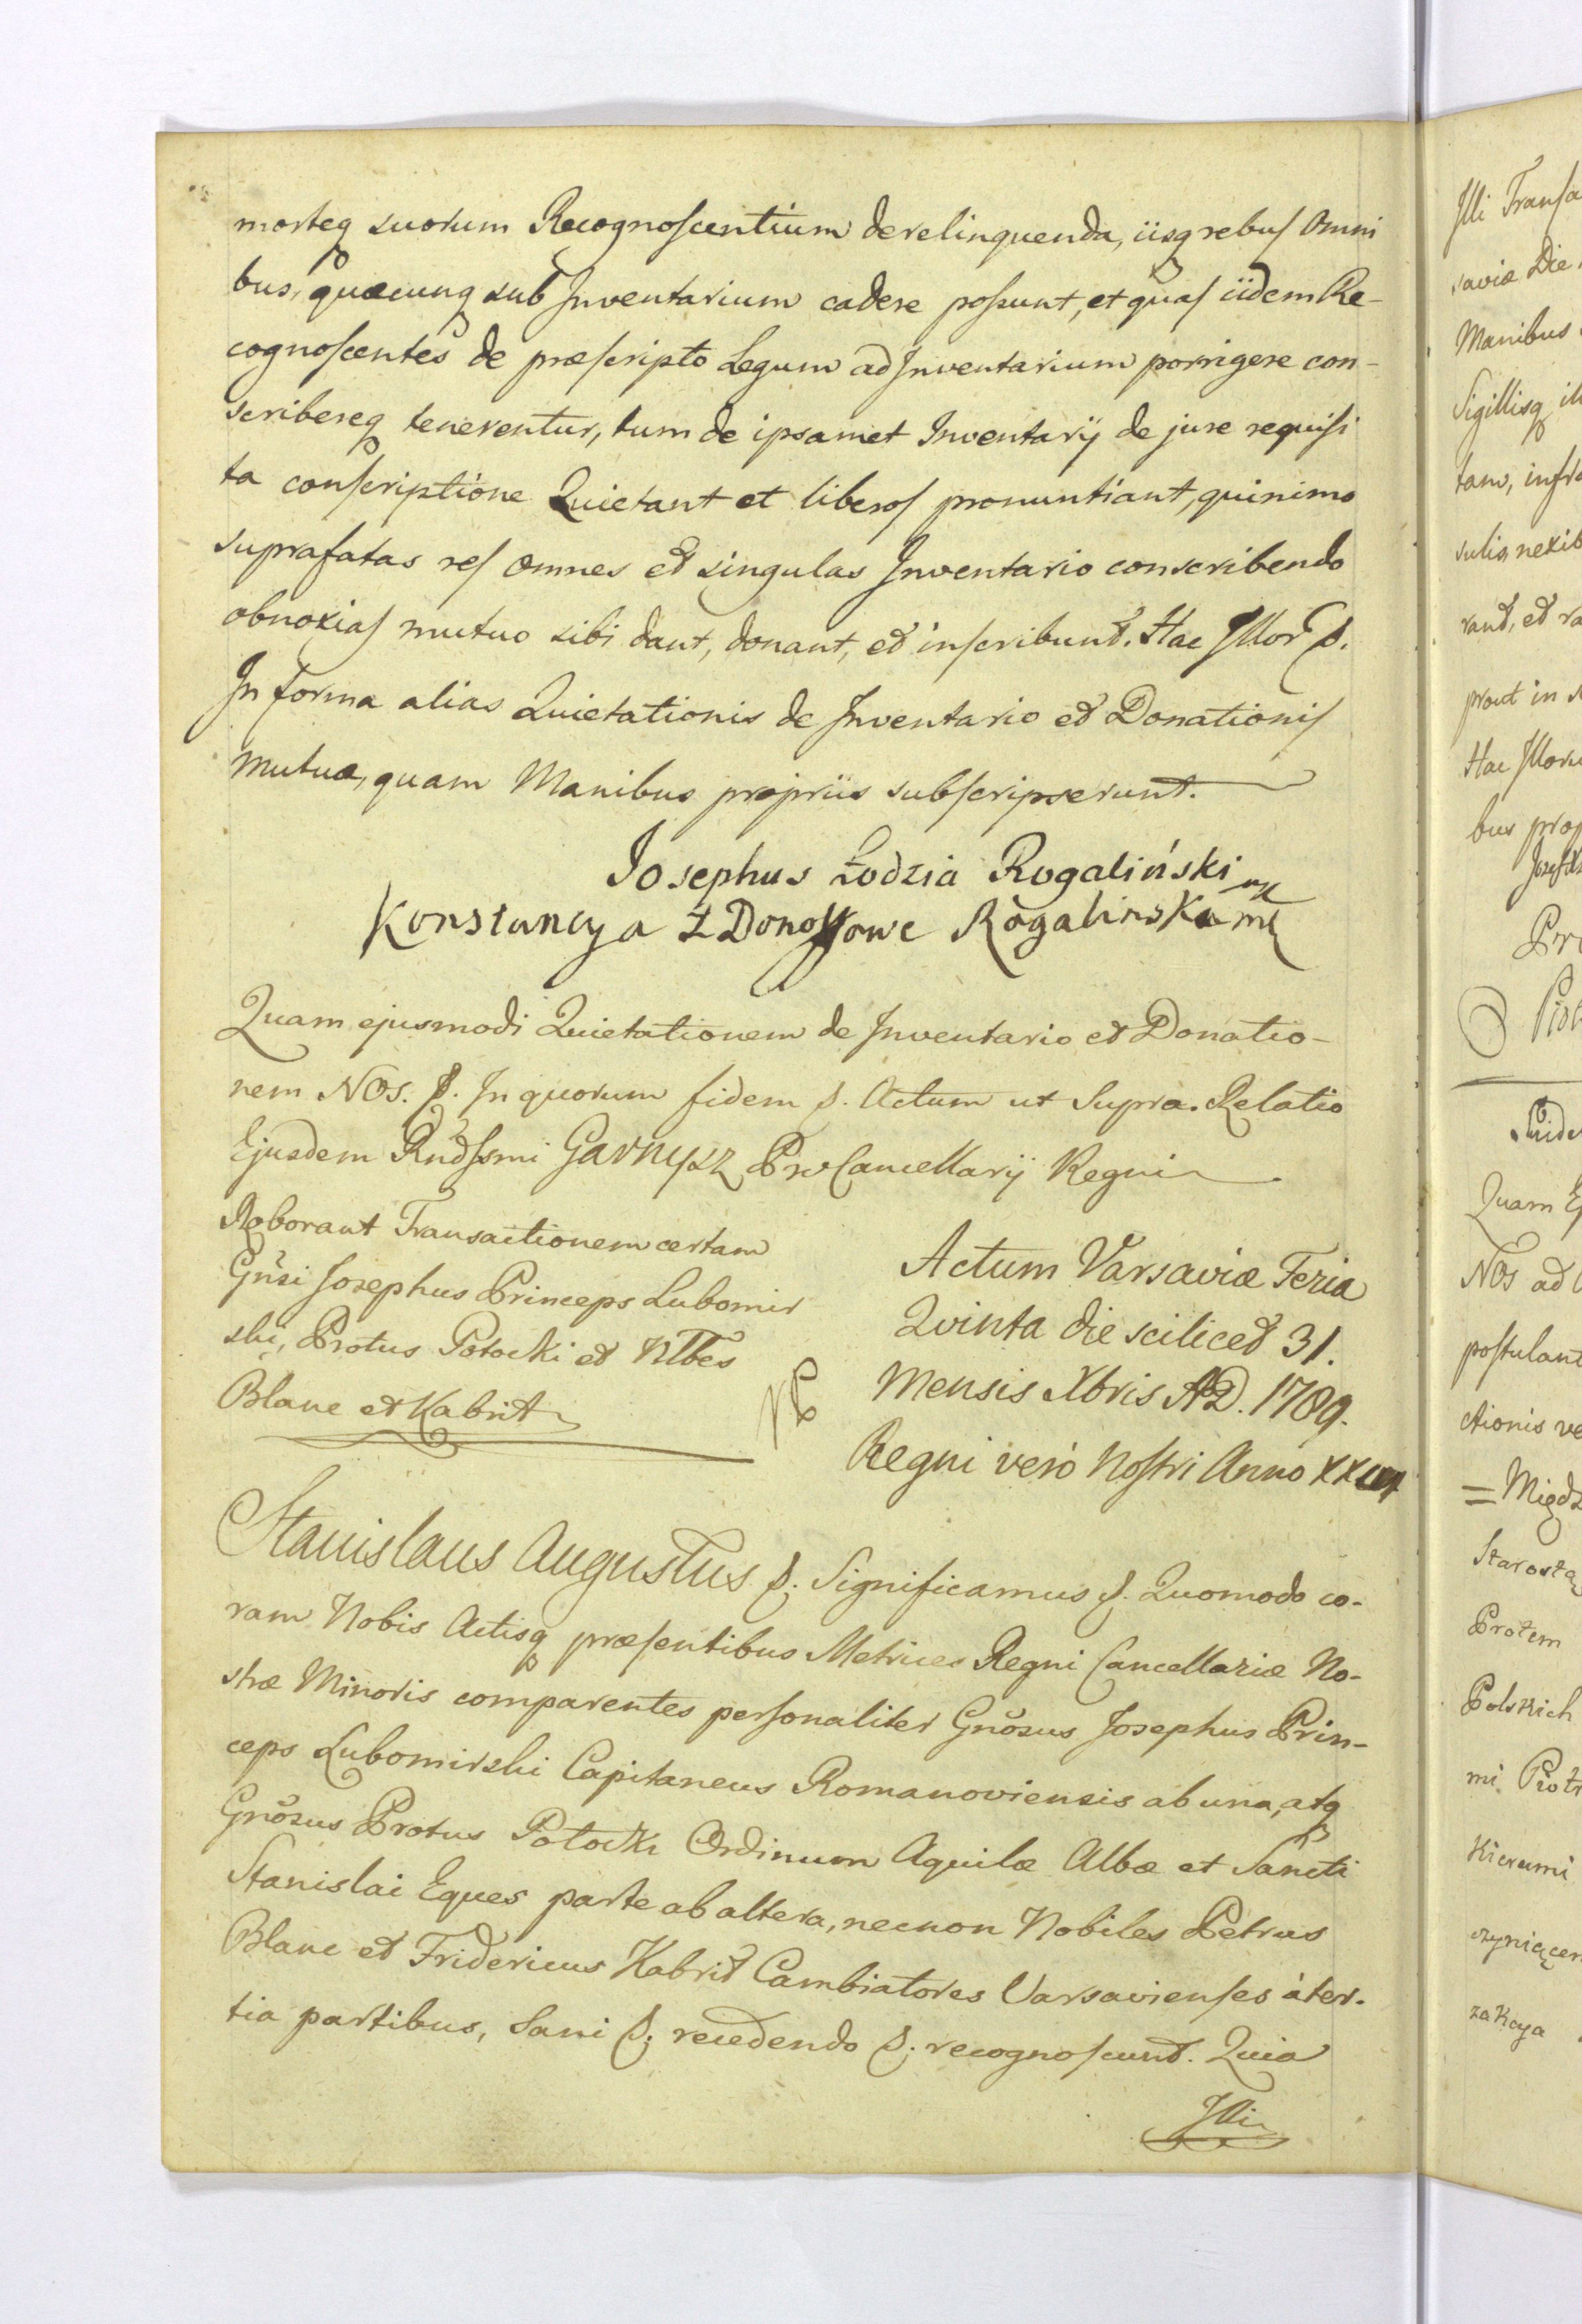 morteq suorum Recognoscentium derelinquenda, iisq rebus Omni
bus, quæcunq sub Inventarium cadere possunt, et quas iidem Re-
cognoscentes de præscripto Legum ad Inventarium porrigere con-
scribereq tenerentur, tum de ipsamet Inventarÿ de jure requisi
ta conscriptione Quietant et liberos pronuntiant, quinimo
suprafatas res omnes et singulas Inventario conscribendo
obnoxias mutuo sibi dant, donant, et inscribunt. Hac Illor p.
In forma alias Quietationis de Inventario et Donationis
mutuæ, quam Manibus propriis subscripserunt.
Josephus Łodzia Rogaliński mp
Konstancya z Rogalinska mp
Quam ejusmodi Quietationem de Inventario et Donatio-
nem NOS. p. In quorum fidem p. Actum ut Supra. Relatio
Ejusdem Rndssmi Garnysz ProCancellarÿ Regni
Roborant Transactionem certam
Gnsi Josephus Princeps Lubomir
ski, Protus Potocki et Nbles
Blanc et Kabrit
Actum Varsaviæ Feria
Quinta die scilicet 31.
Mensis Xbris AD. 1789.
Regni verò Nostri Anno
Stanislaus Augustus p. Significamus p. Quomodo co-
ram Nobis Actisq præsentibus Metrices Regni Cancellariæ No-
stræ Minoris comparentes personaliter Gnosus Josephus Prin-
ceps Lubomirski Capitaneus Romanoviensis ab una, atq
Gnosus Protus Potocki Ordinum Aquilæ Albæ et Sancti
Stanislai Eques parte ab altera, necnon Nobiles Petrus
Blanc et Fridericus Kabrit Cambiatores Varsavienses à ter-
tia partibus, Sani p. recedendo p. recognoscunt. Quia
Illi
Illi Transa
saviæ Die
Manibus
Sigillisq
tam, infra
prout in
Quam
NOS ad
postulant
ctionis ve
= Migdz
Starosta
Protem
Polskich
mi Piotr
zakcya